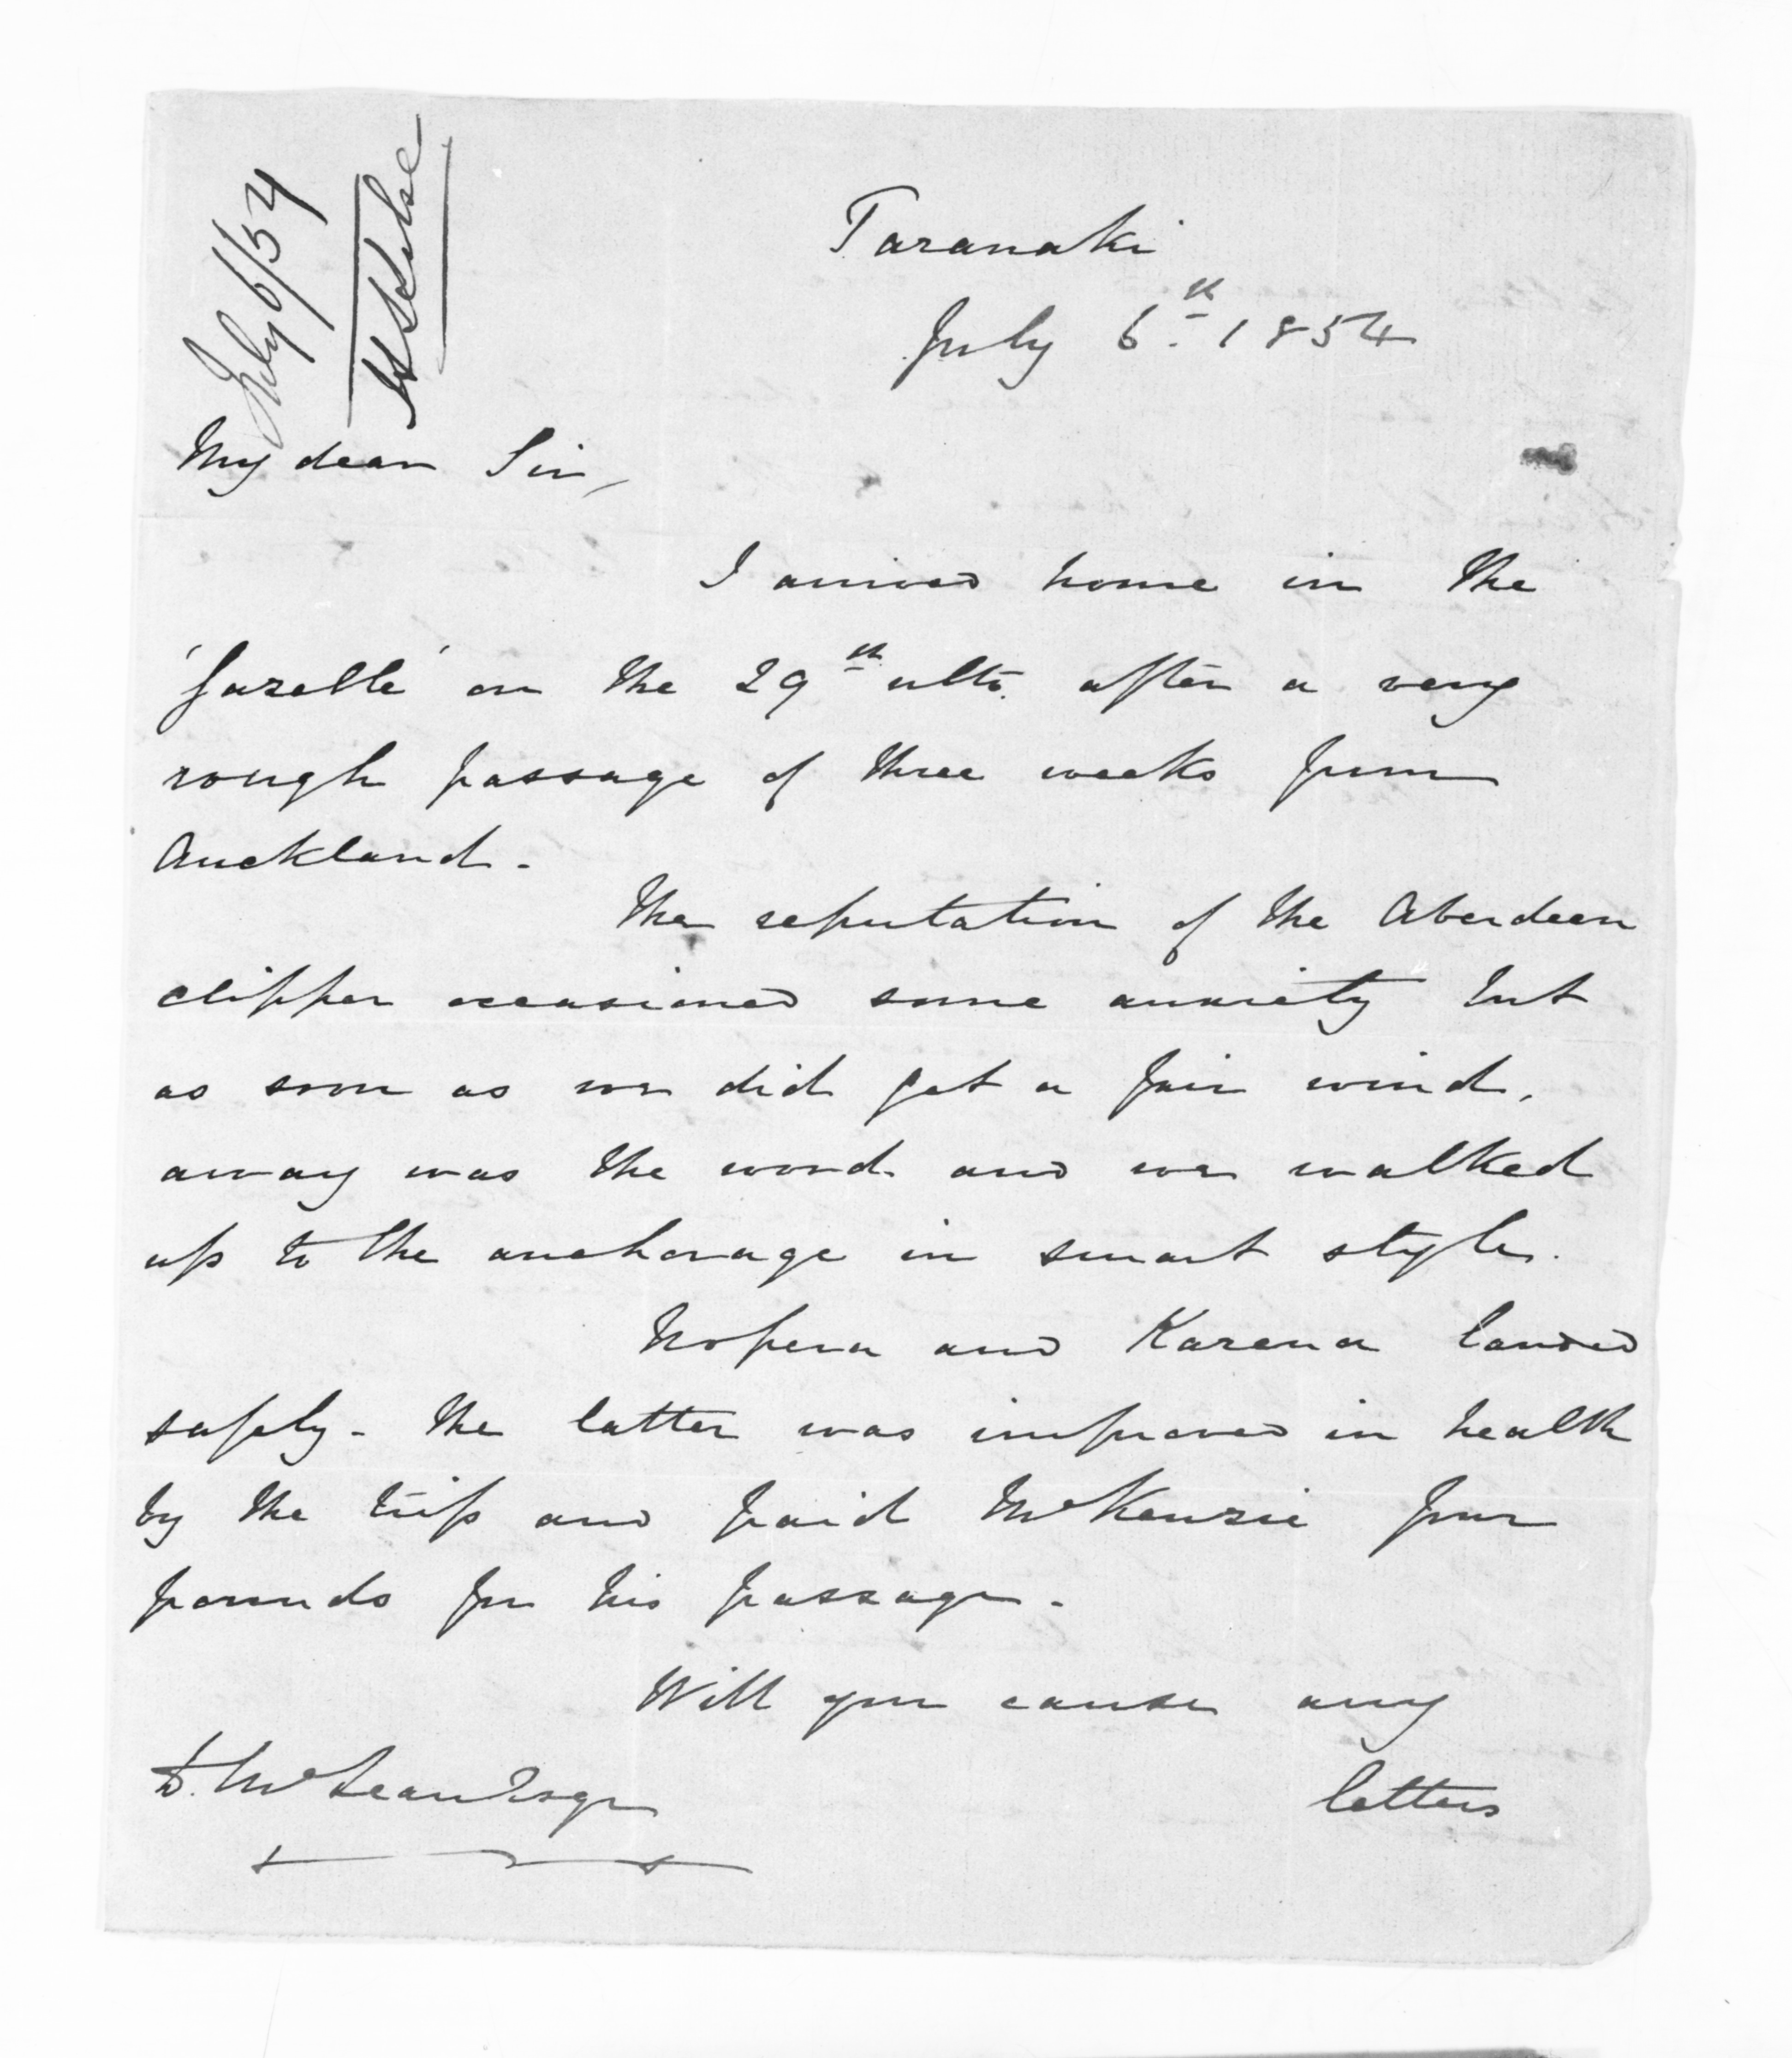 July 6/54
H Halse
Taranaki
July 6th. 1854
My dear Sir,
I arrived home in the
'Gazelle' on the 29th ulto. after a very
rough passage of three weeks from
Auckland.
The reputation of the Aberdeen
clipper occasioned some anxiety but
as soon as we did get a fair wind,
away was the word and we walked
up to the anchorage in smart style.
Nopera and Karena landed
safely - the latter was improved in health
by the trip and paid McKenzie four
pounds for his passage.
Will you cause any
D. McLean Esqr
letters